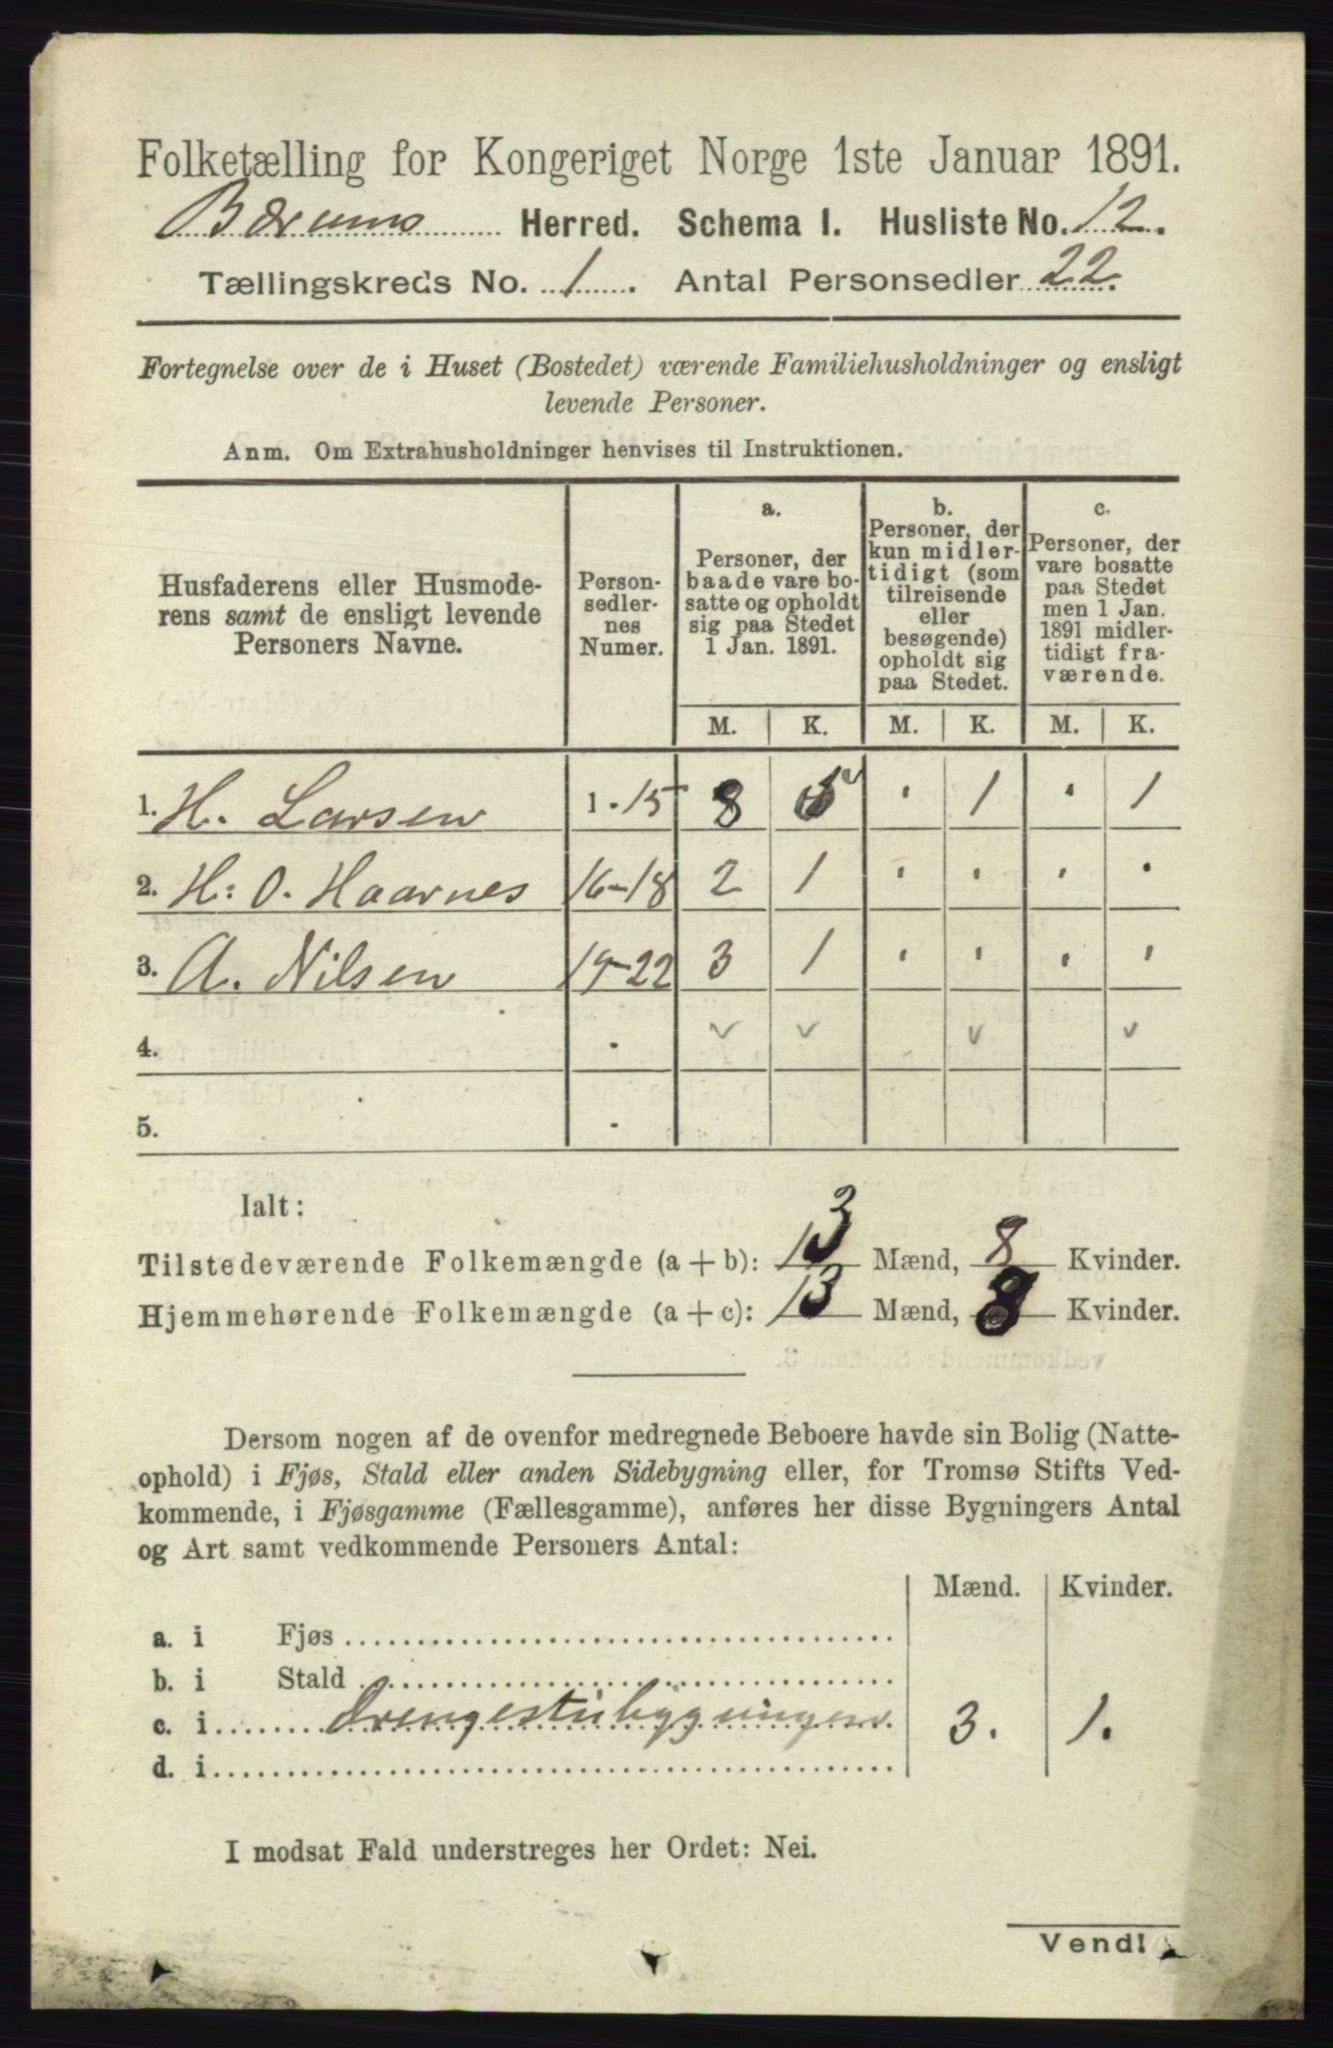 Folketælling for Kongeriget Norge 1ste Januar 1891.
Bærums Herred. Schema I. Husliste No. 12.
Tællingskreds No. 1. Antal Personsedler 22.
Fortegnelse over de i Huset (Bostedet) værende Familiehusholdninger og ensligt
levende Personer.
Anm. Om Extrahusholdninger henvises til Instruktionen.
Husfaderens eller Husmode-
rens samt de ensligt levende
Personers Navne.
Person-
sedler-
nes
Numer.
a.
Personer, der
baade vare bo-
satte og opholdt
sig paa Stedet
1 Jan. 1891.
b.
Personer, der
kun midler-
tidigt (som
tilreisende
eller
besøgende)
opholdt sig
paa Stedet.
c.
Personer, der
vare bosatte
paa Stedet
men 1 Jan.
1891 midler-
tidigt fra-
værende.
M. K. M. K. M. K.
1. H. Larsen 1 - 15 8 5 · 1 · 1
2. H. O. Haarnes 16-18 2 1 · · · ·
3. A. Nilsen 19-22 3 1 · · · ·
4. - v v v v
5. -
Ialt:
Tilstedeværende Folkemængde (a + b): 13 Mænd, 8 Kvinder.
Hjemmehørende Folkemængde (a + c): 13 Mænd, 8 Kvinder.
Dersom nogen af de ovenfor medregnede Beboere havde sin Bolig (Natte-
ophold) i Fjøs, Stald eller anden Sidebygning eller, for Tromsø Stifts Ved-
kommende, i Fjøsgamme (Fællesgamme), anføres her disse Bygningers Antal
og Art samt vedkommende Personers Antal:
Mænd. Kvinder.
a. i Fjøs
b. i Stald
c. i Drengestubygningen 3. 1.
d. i
I modsat Fald understreges her Ordet: Nei.
Vend!